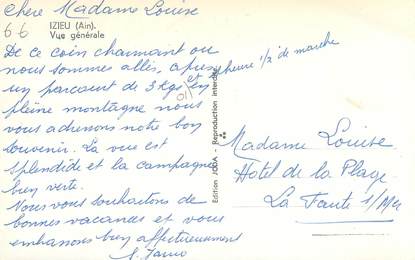 Chère Madame Louise
66
IZIEU (Ain).
Vue générale
De ce coin charmant ou
nous sommes allés, après
un parcourt de 3 Kgs et en
heure 1/2 de marche
pleine montagne nous
vous adressons notre bon
souvenir. La vue est
splendide et la campagne
bien verte.
Nous vous souhaitons de
bonnes vacances et vous
embrassons bien affectueusement
Edition - Reproduction interdite
01
Madame Louise
Hotel de la Plage
La Faute s/Mer